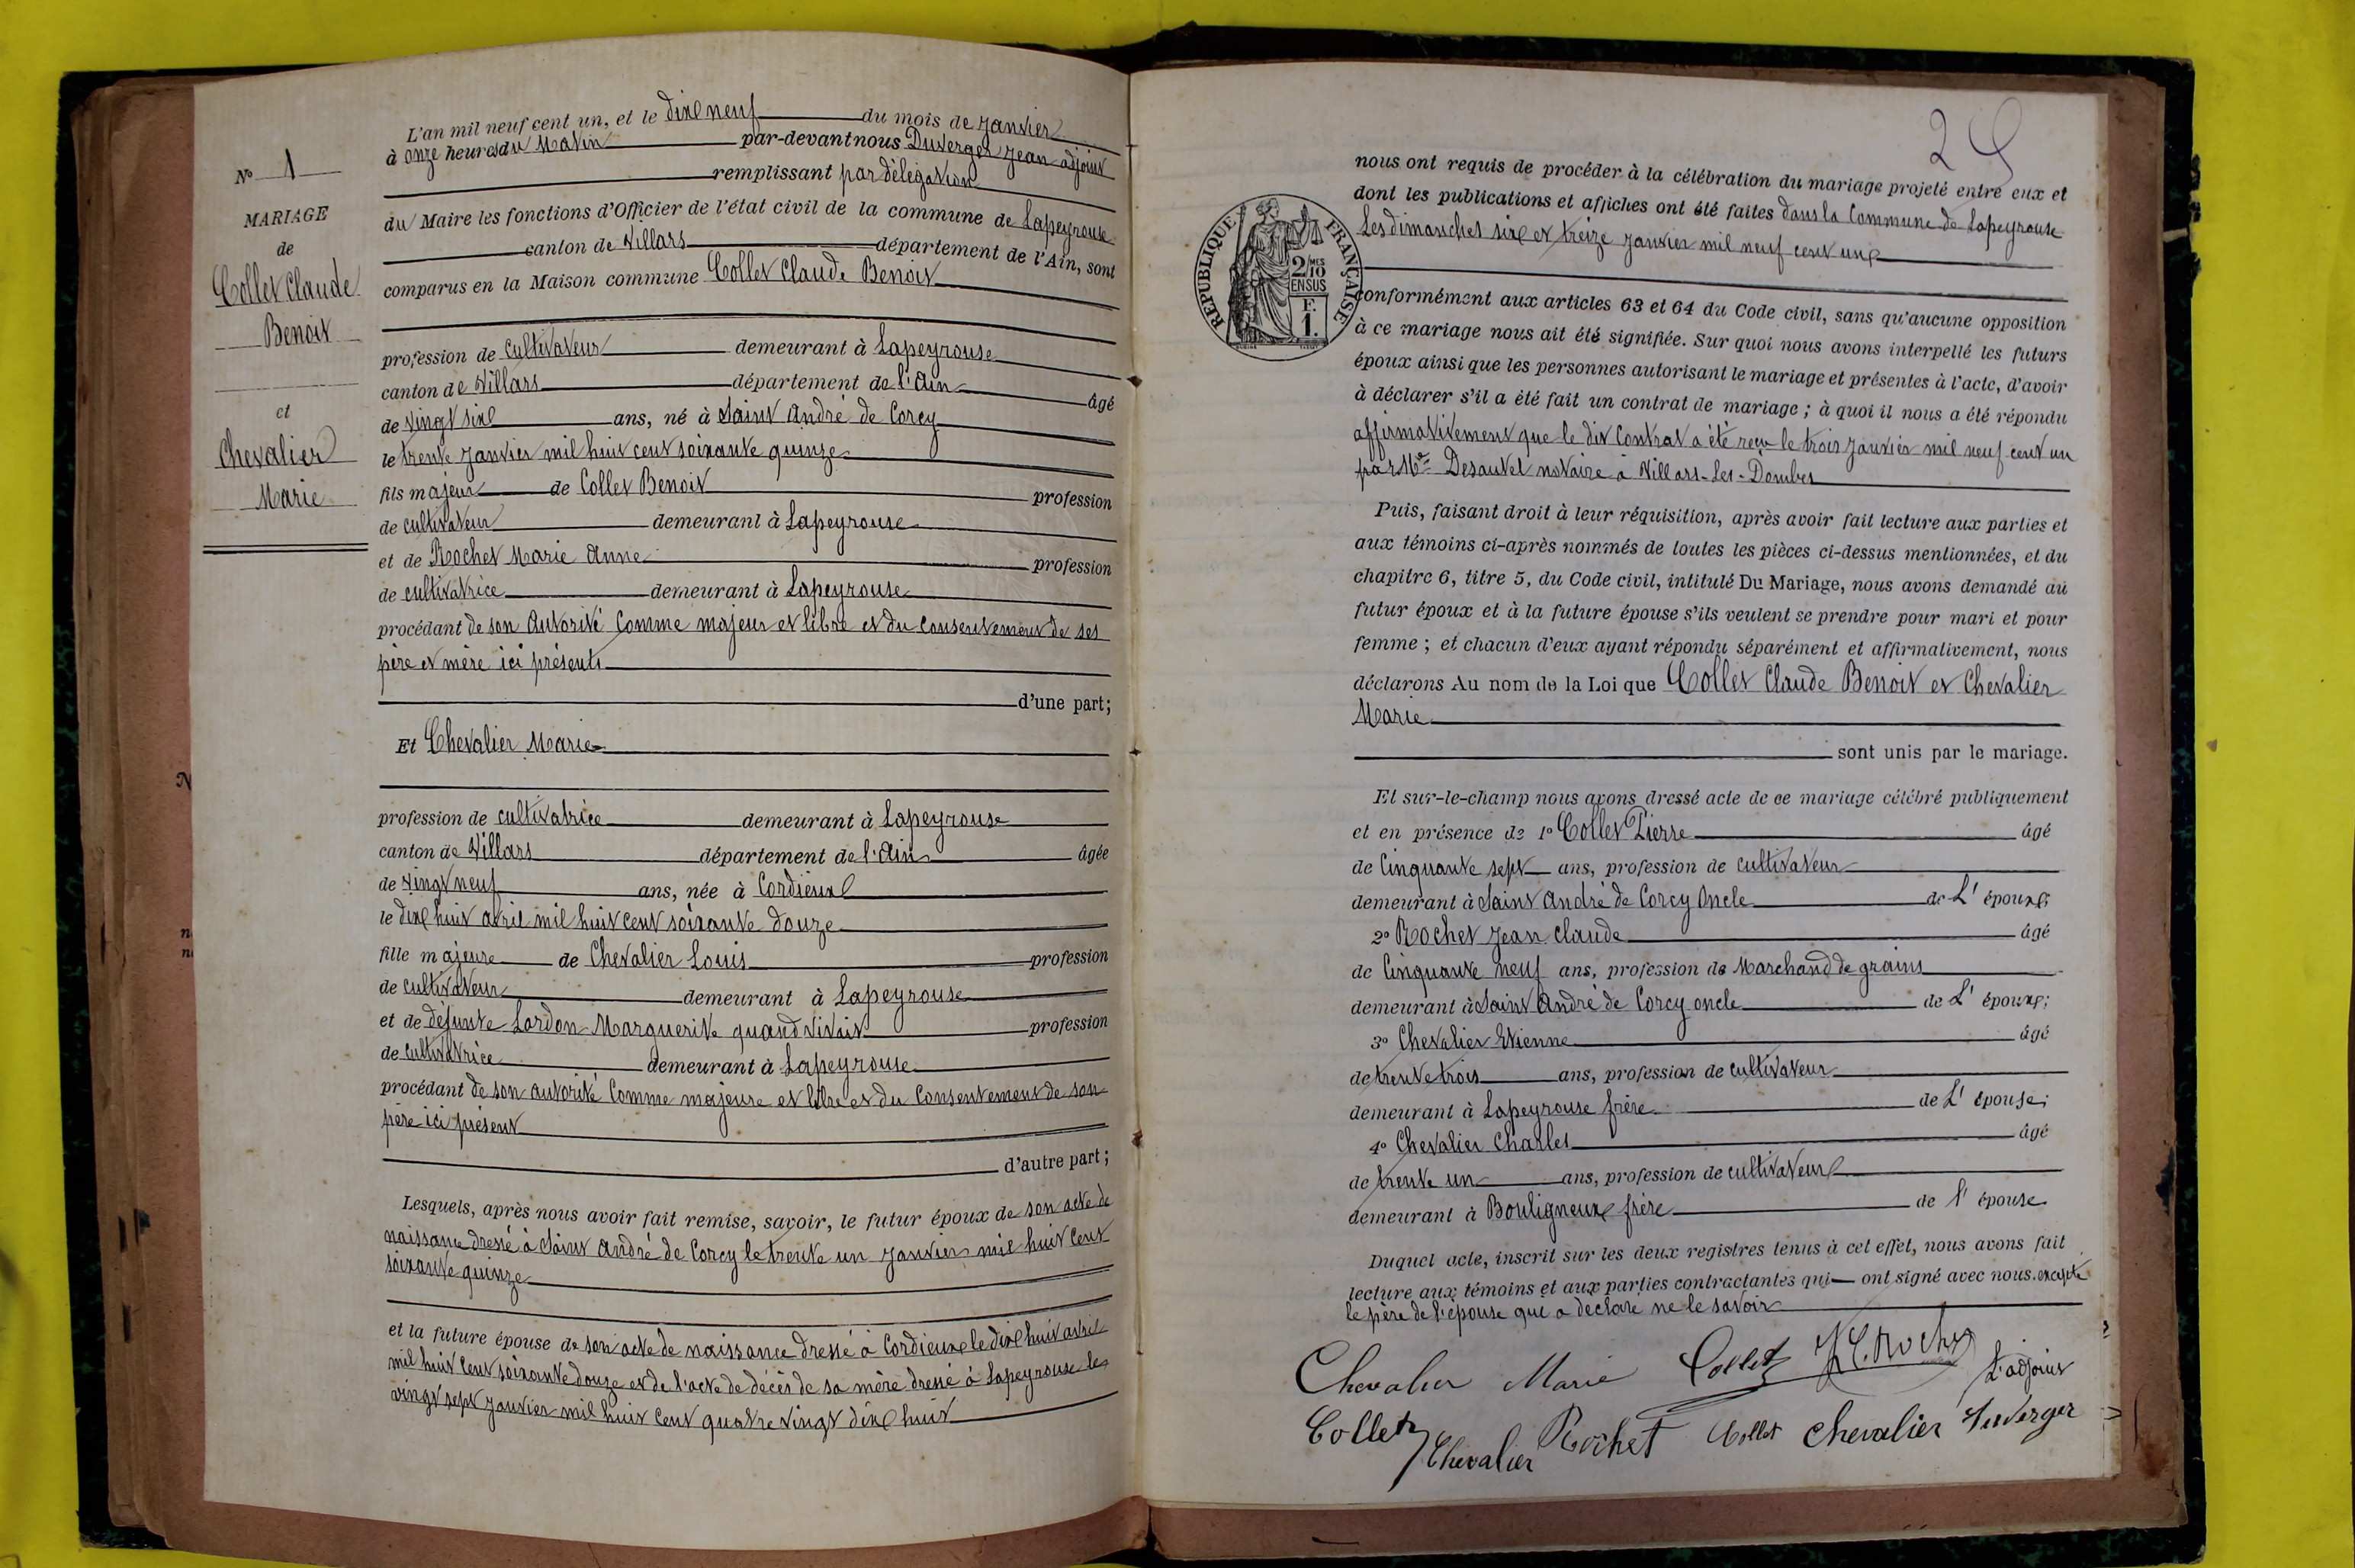 N° 1
MARIAGE
de
Collet Claude
Benoit
et
Chevalier
Marie
L'an mil neuf cent un, et le dix neuf du mois de Janvier
à onze heures du Matin par-devant nous Duverger Jean adjoint
remplissant par délégation
du Maire les fonctions d'Officier de l'état civil de la commune de Lapeyrouse
canton de Villars département de l'Ain, sont
comparus en la Maison commune Collet Claude Benoit
profession de cultivateur demeurant à Lapeyrouse
canton de Villars département de l'Ain âgé
de vingt six ans, né à Saint André de Corcy
le trente Janvier mil huit cent soixante quinze
fils majeur de Collet Benoit profession
de cultivateur demeurant à Lapeyrouse
et de Rochet Marie Anne profession
de cultivatrice demeurant à Lapeyrouse
procédant de son Autorité Comme majeur et libre et du consentement de ses
père et mère ici présents
d'une part;
Et Chevalier Marie
profession de cultivatrice demeurant à Lapeyrouse
canton de Villars département de l'Ain âgée
de vingt neuf ans, née à Cordieux
le dix huit avril mil huit cent soixante douze
fille majeure de Chevalier Louis profession
de cultivateur demeurant à Lapeyrouse
et de défunte Lardon Marguerite quand vivait profession
de cultivatrice demeurant à Lapeyrouse
procédant de son autorité Comme majeure et libre et du Consentement de son
père ici présent
d'autre part;
Lesquels, après nous avoir fait remise, savoir, le futur époux de son acte de
naissance dressé à Saint André de Corcy le trente un Janvier mil huit cent
soixante quinze
et la future épouse de son acte de naissance dressé à Cordieux le dix huit avril
mil huit cent soixante douze et de l'acte de décès de sa mère dressé à Lapeyrouse le
vingt sept Janvier mil huit cent quatre vingt dix huit
RÉPUBLIQUE FRANÇAISE
2/10 MES
EN SUS
F.
1.
nous ont requis de procéder à la célébration du mariage projeté entre eux et
dont les publications et affiches ont été faites dans la Commune de Lapeyrouse
Les dimanches six et treize Janvier mil neuf cent un
conformément aux articles 63 et 64 du Code civil, sans qu'aucune opposition
à ce mariage nous ait été signifiée. Sur quoi nous avons interpellé les futurs
époux ainsi que les personnes autorisant le mariage et présentes à l'acte, d'avoir
à déclarer s'il a été fait un contrat de mariage; à quoi il nous a été répondu
affirmativement que le dit Contrat a été reçu le trois Janvier mil neuf cent un
par Me Desautel notaire à Villars-Les-Dombes
Puis, faisant droit à leur réquisition, après avoir fait lecture aux parties et
aux témoins ci-après nommés de toutes les pièces ci-dessus mentionnées, et du
chapitre 6, titre 5, du Code civil, intitulé Du Mariage, nous avons demandé au
futur époux et à la future épouse s'ils veulent se prendre pour mari et pour
femme; et chacun d'eux ayant répondu séparément et affirmativement, nous
déclarons Au nom de la Loi que Collet Claude Benoit et Chevalier
Marie
sont unis par le mariage.
Et sur-le-champ nous avons dressé acte de ce mariage célébré publiquement
et en présence de 1° Collet Pierre âgé
de Cinquante sept ans, profession de cultivateur
demeurant à Saint André de Corcy Oncle de L' époux;
2° Rochet Jean Claude âgé
de Cinquante neuf ans, profession de Marchand de grains
demeurant à Saint André de Corcy oncle de L' époux;
3° Chevalier Etienne âgé
de trente trois ans, profession de cultivateur
demeurant à Lapeyrouse frère de L' épouse;
4° Chevalier Charles âgé
de trente un ans, profession de cultivateur
demeurant à Bouligneux frère de l' épouse
Duquel acte, inscrit sur les deux registres tenus à cet effet, nous avons fait
lecture aux témoins et aux parties contractantes qui ont signé avec nous. excepté
le père de l'épouse que a déclaré ne le savoir
Chevalier Marie Collet J C. Rochet L'adjoint
Collet Chevalier Rochet Collet Chevalier Duverger